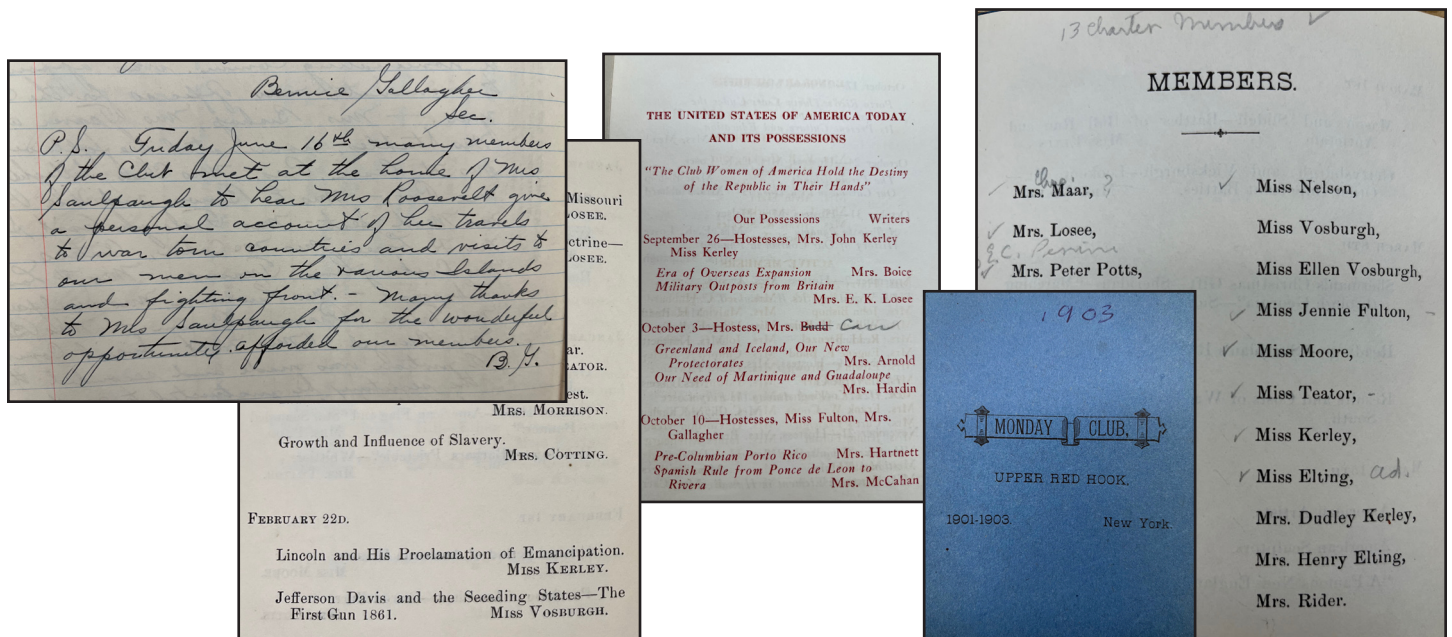 Bernice Gallagher
Sec.
P.S. Friday June 16th many members
of the Club met at the home of Mrs
Saulpaugh to hear Mrs Roosevelt give
a personal account of her travels
to war torn countries and visits to
our men on the various Islands
and fighting front. - Many thanks
to Mrs Saulpaugh for the wonderful
opportunity afforded our members.
B.G.
Missouri
LOSEE.
ctrine—
LOSEE.
ar.
EATOR.
est.
MRS. MORRISON.
Growth and Influence of Slavery.
MRS. COTTING.
FEBRUARY 22D.
Lincoln and His Proclamation of Emancipation.
MISS KERLEY.
Jefferson Davis and the Seceding States—The
First Gun 1861. MISS VOSBURGH.
THE UNITED STATES OF AMERICA TODAY
AND ITS POSSESSIONS
"The Club Women of America Hold the Destiny
of the Republic in Their Hands"
Our Possessions Writers
September 26—Hostesses, Mrs. John Kerley
Miss Kerley
Era of Overseas Expansion Mrs. Boice
Military Outposts from Britain
Mrs. E. K. Losee
October 3—Hostess, Mrs. Budd Carr
Greenland and Iceland, Our New
Protectorates Mrs. Arnold
Our Need of Martinique and Guadaloupe
Mrs. Hardin
October 10—Hostesses, Miss Fulton, Mrs.
Gallagher
Pre-Columbian Porto Rico Mrs. Hartnett
Spanish Rule from Ponce de Leon to
Rivera Mrs. McCahan
1903
MONDAY CLUB,
UPPER RED HOOK.
1901-1903. New York.
13 Charter Members
MEMBERS.
Mrs. Maar, ?
Mrs. Losee,
E.C.
Mrs. Peter Potts,
Miss Nelson,
Miss Vosburgh,
Miss Ellen Vosburgh,
Miss Jennie Fulton, -
Miss Moore,
Miss Teator, -
Miss Kerley,
Miss Elting, ad.
Mrs. Dudley Kerley,
Mrs. Henry Elting,
Mrs. Rider.